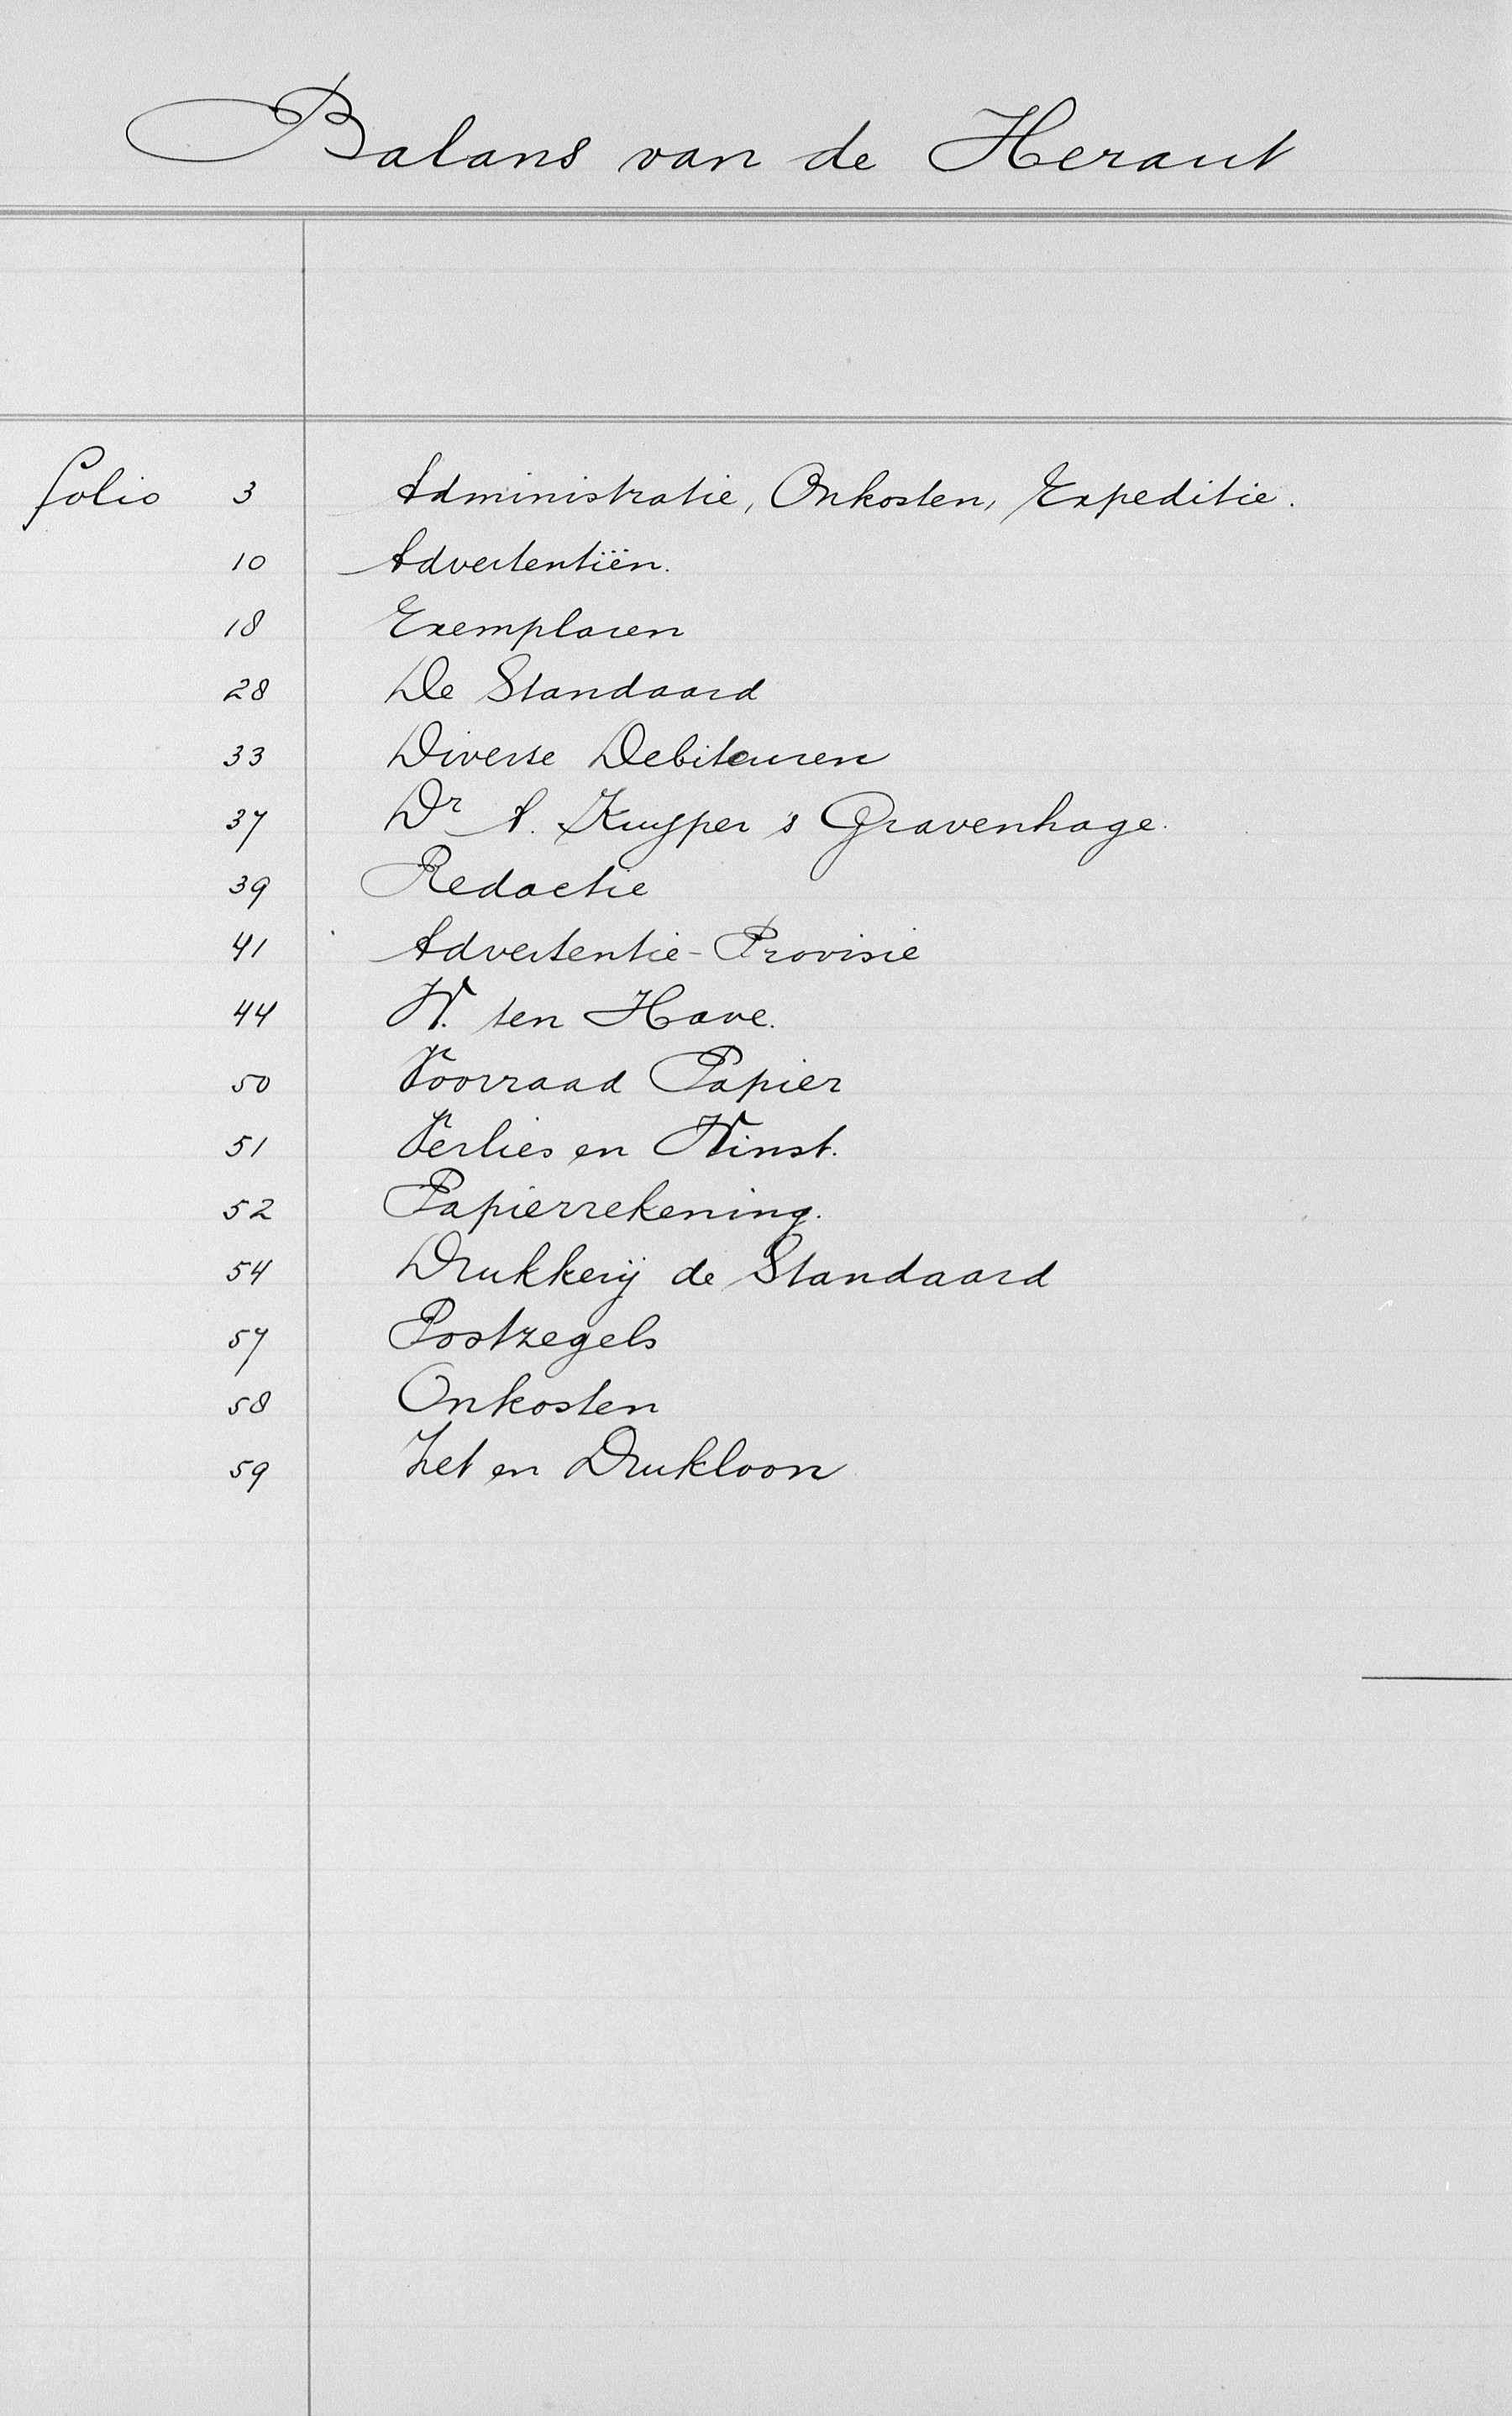 Balans van de Heraut
folio 3 Administratie, Onkosten, Expeditie.
10 Advertentiën.
18 Exemplaren
28 De Standaard
33 Diverse Debiteuren
37 Dr A. Kuyper 's Gravenhage.
39 Redactie
41 Advertentie-Provisie
44 W. ten Have.
50 Voorraad Papier
51 Verlies en Winst.
52 Papierrekening.
54 Drukkerij de Standaard
57 Postzegels
58 Onkosten
59 Zet en Drukloon